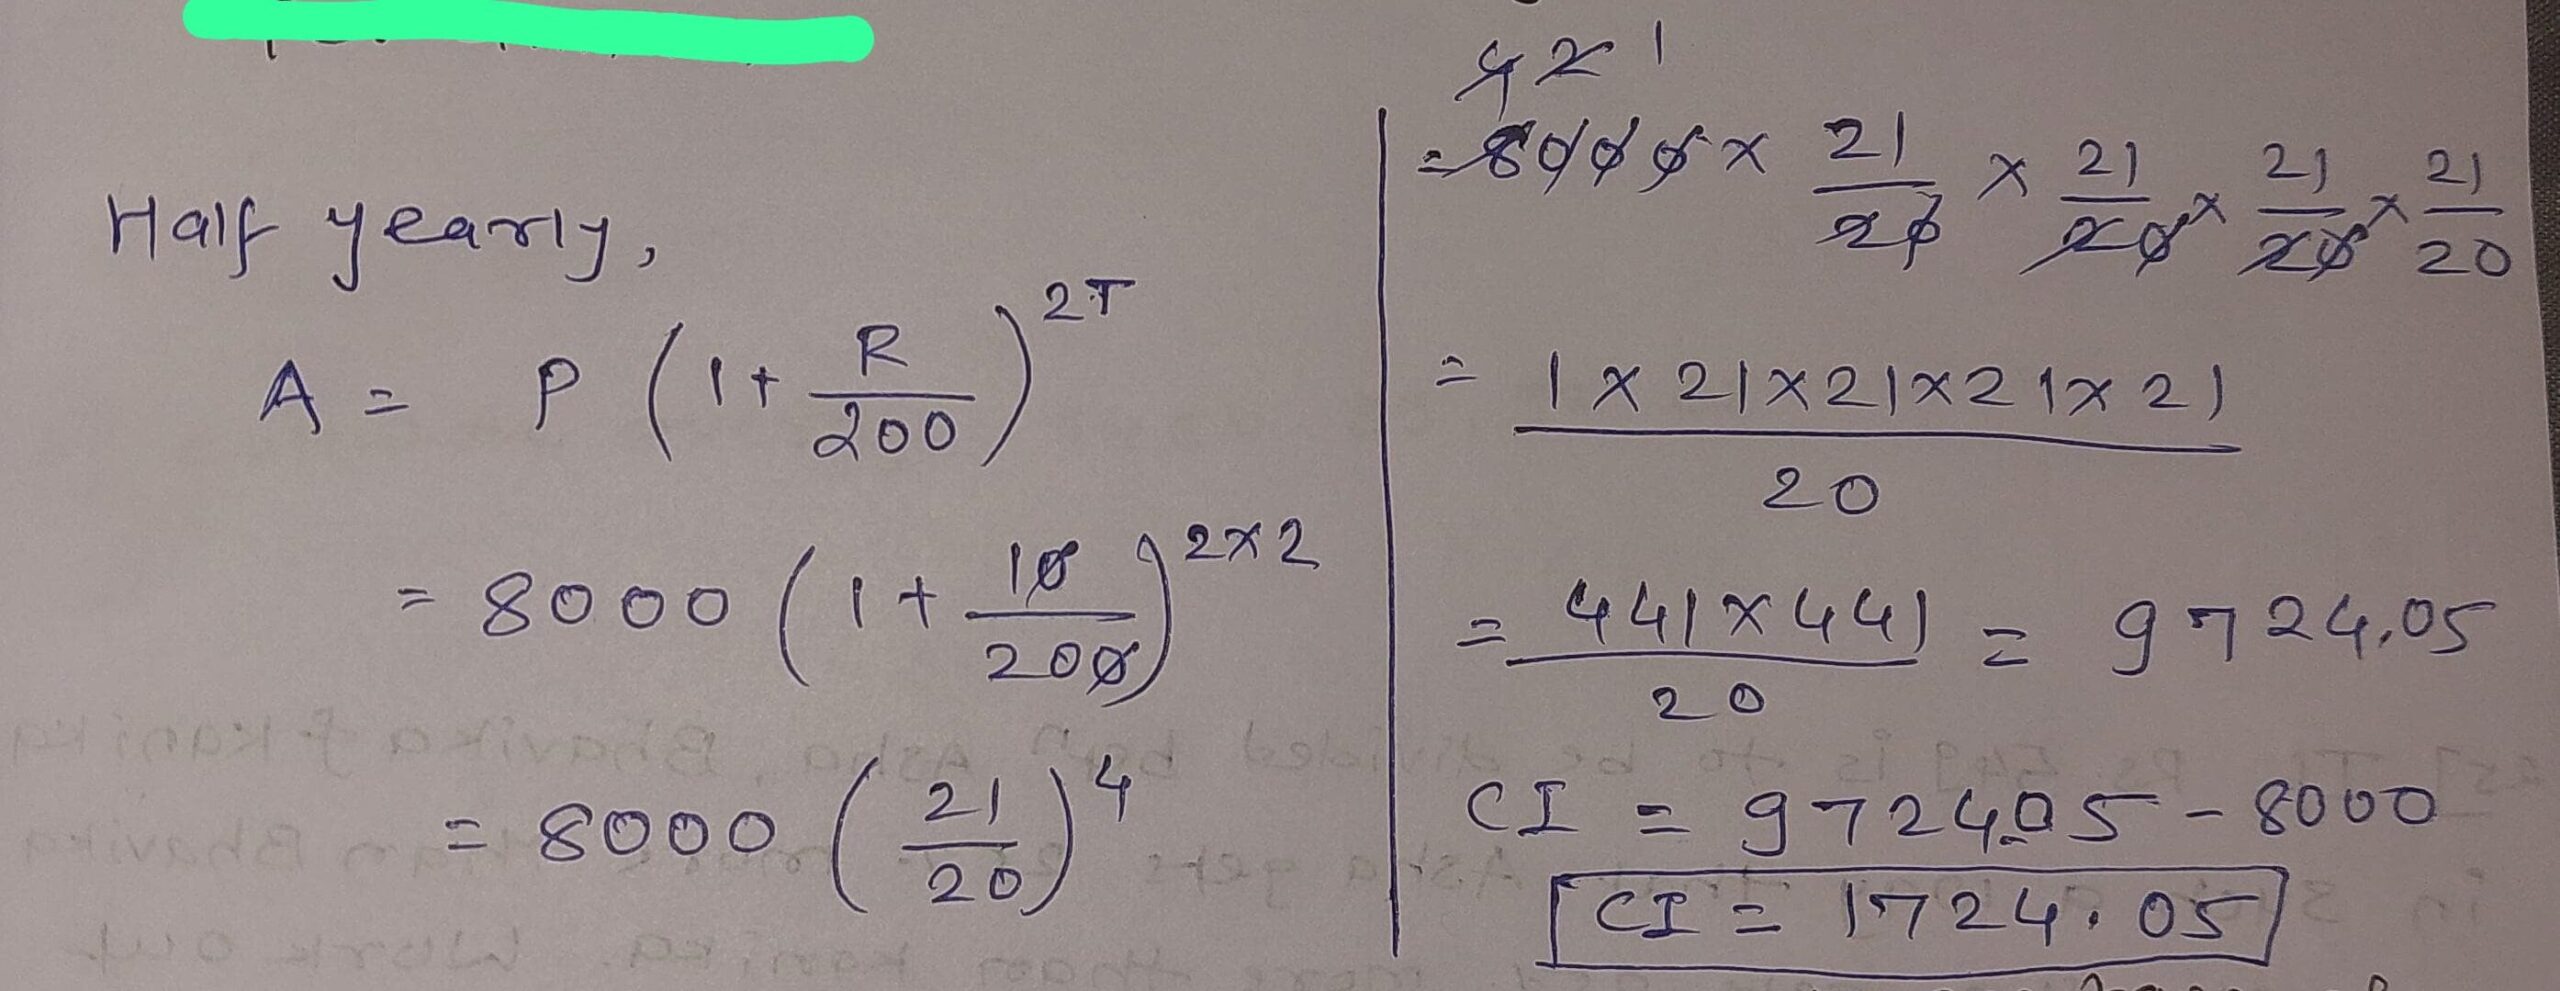 Half yearly,
A = P (1+ R/200)^2T
= 8000 (1+ 10/200)^2×2
= 8000 (21/20)^4
4 2 1
= 8000 × 21/20 × 21/20 × 21/20 × 21/20
= 1×21×21×21×21/20
= 441×441/20 = 9724.05
CI = 9724.05 - 8000
CI = 1724.05